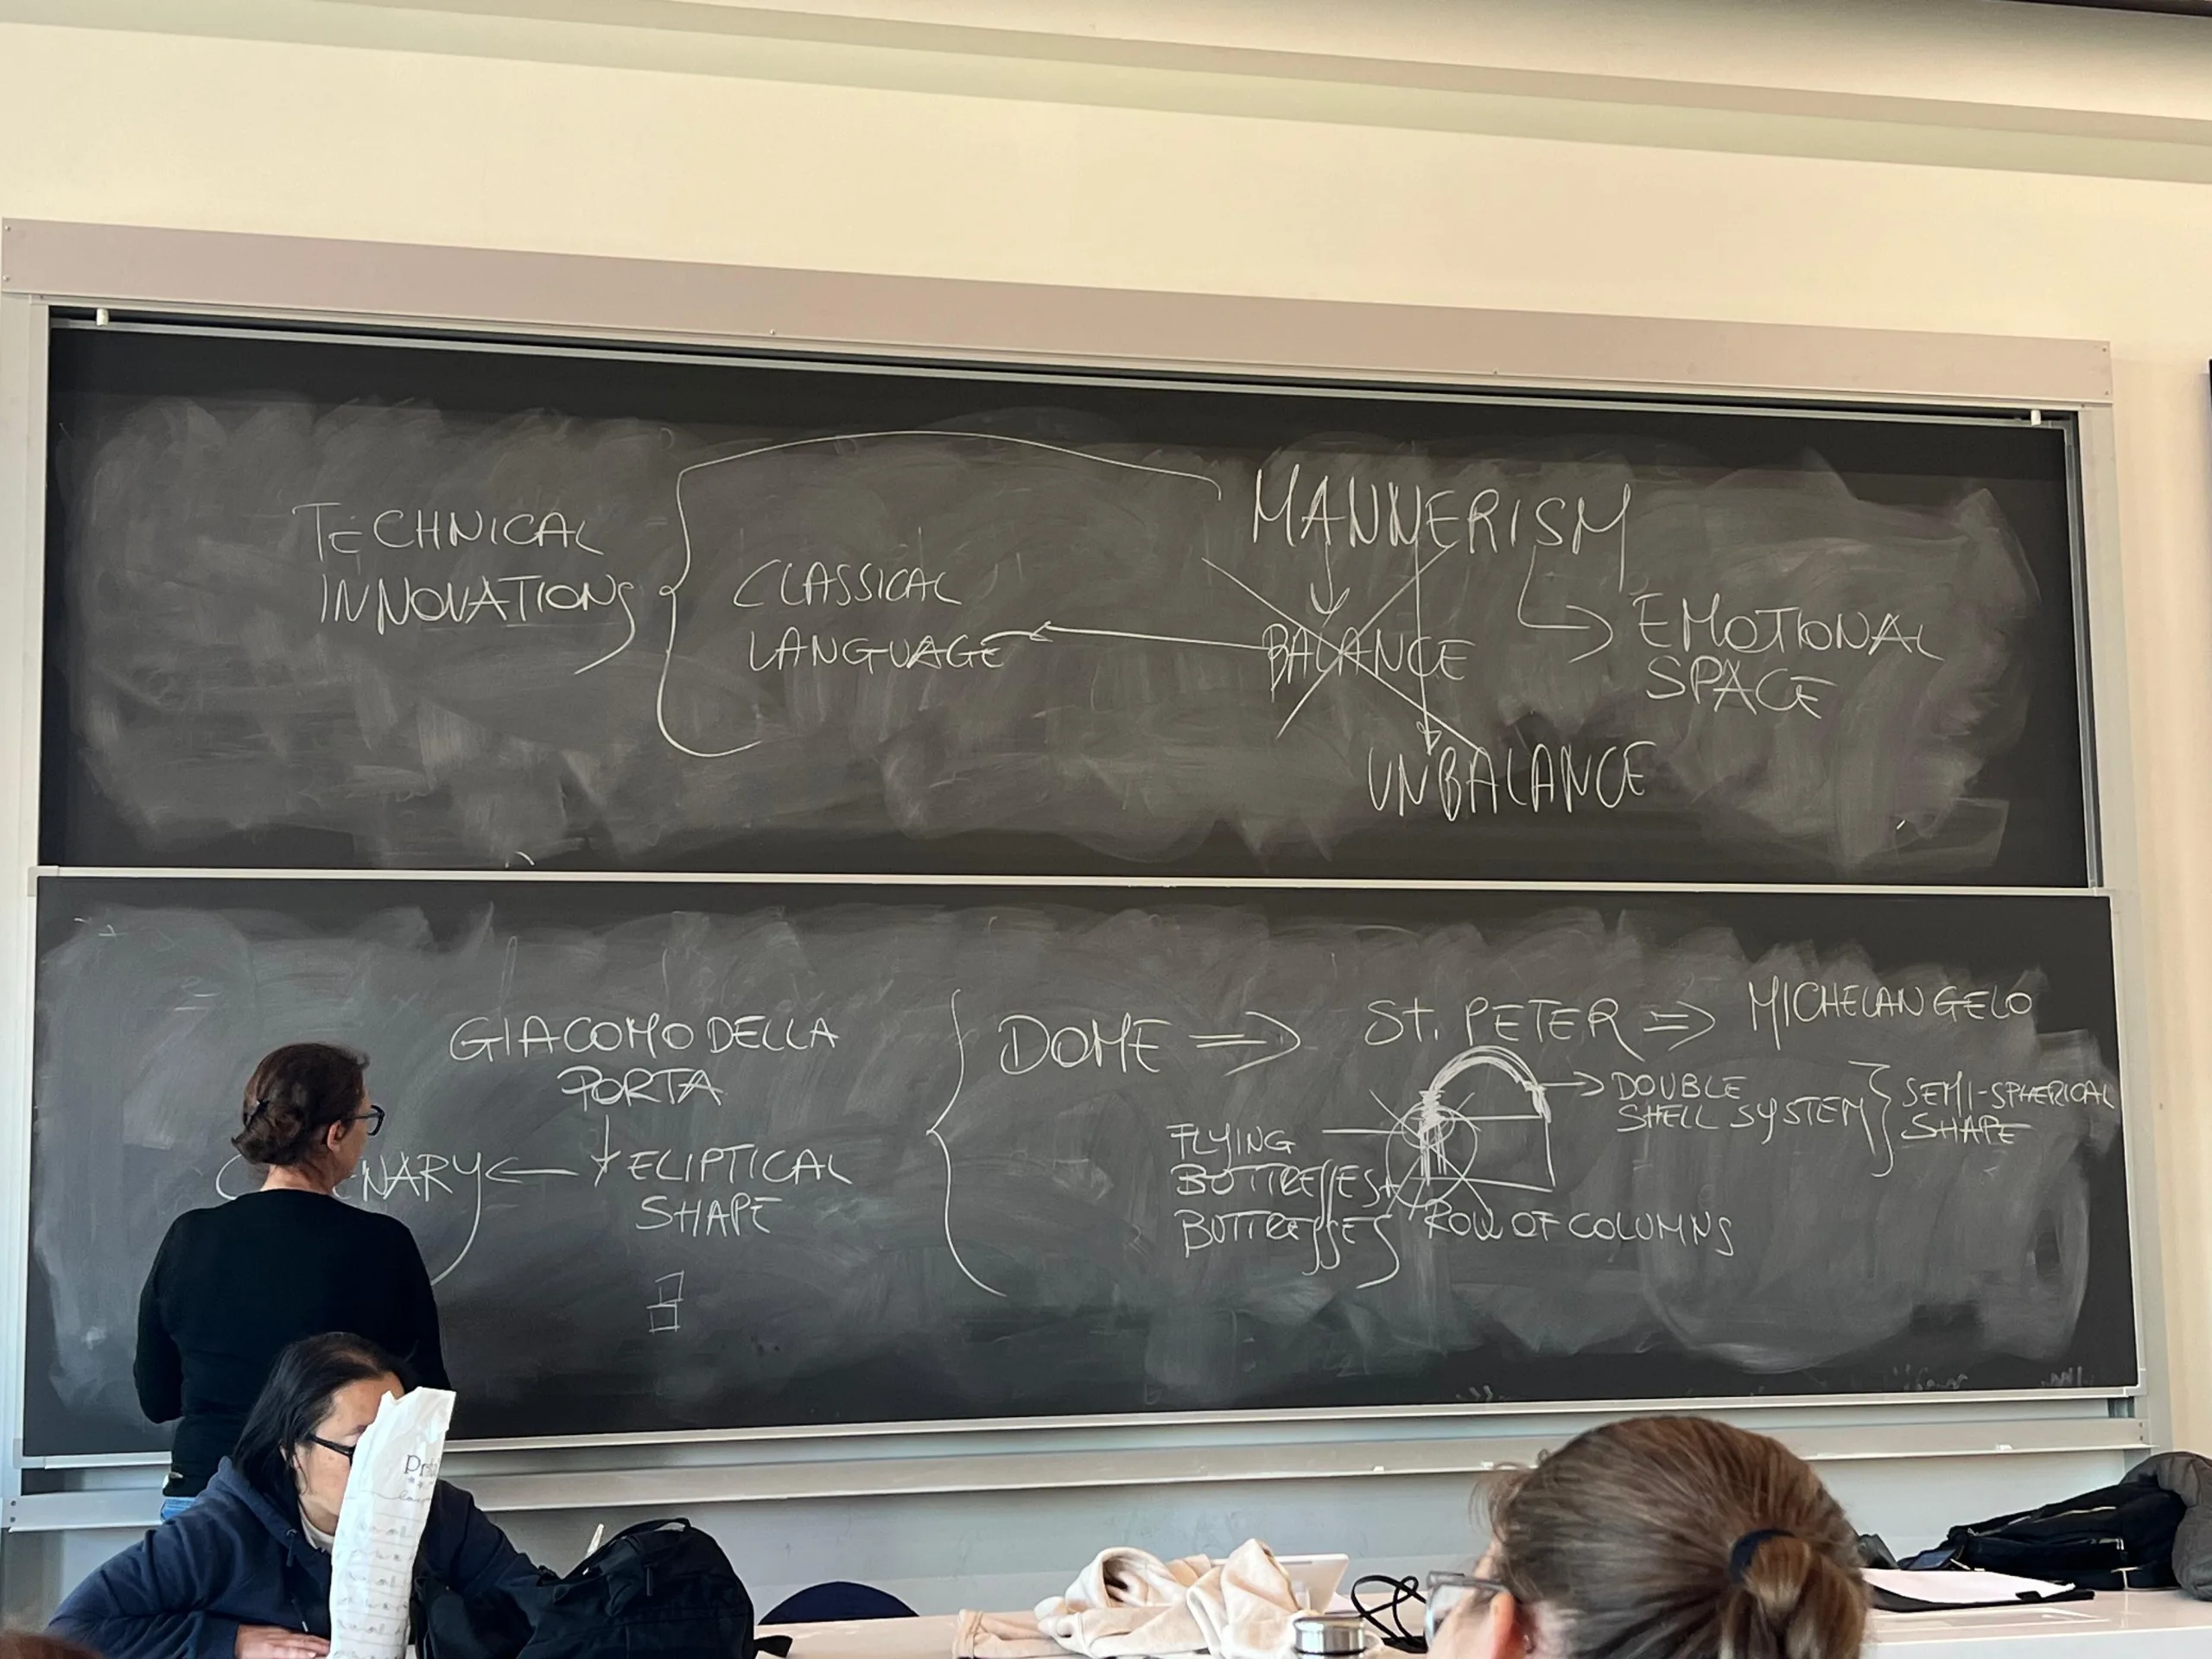 MANNERISM
TECHNICAL
INNOVATIONS
CLASSICAL
LANGUAGE
BALANCE
EMOTIONAL
SPACE
UNBALANCE
GIACOMO DELLA
PORTA
ELIPTICAL
SHAPE
DOME ⇒ St. PETER ⇒ MICHELANGELO
DOUBLE
SHELL SYSTEM
SEMI-SPHERICAL
SHAPE
FLYING
BUTTRESSES+
BUTTRESSES
ROW OF COLUMNS